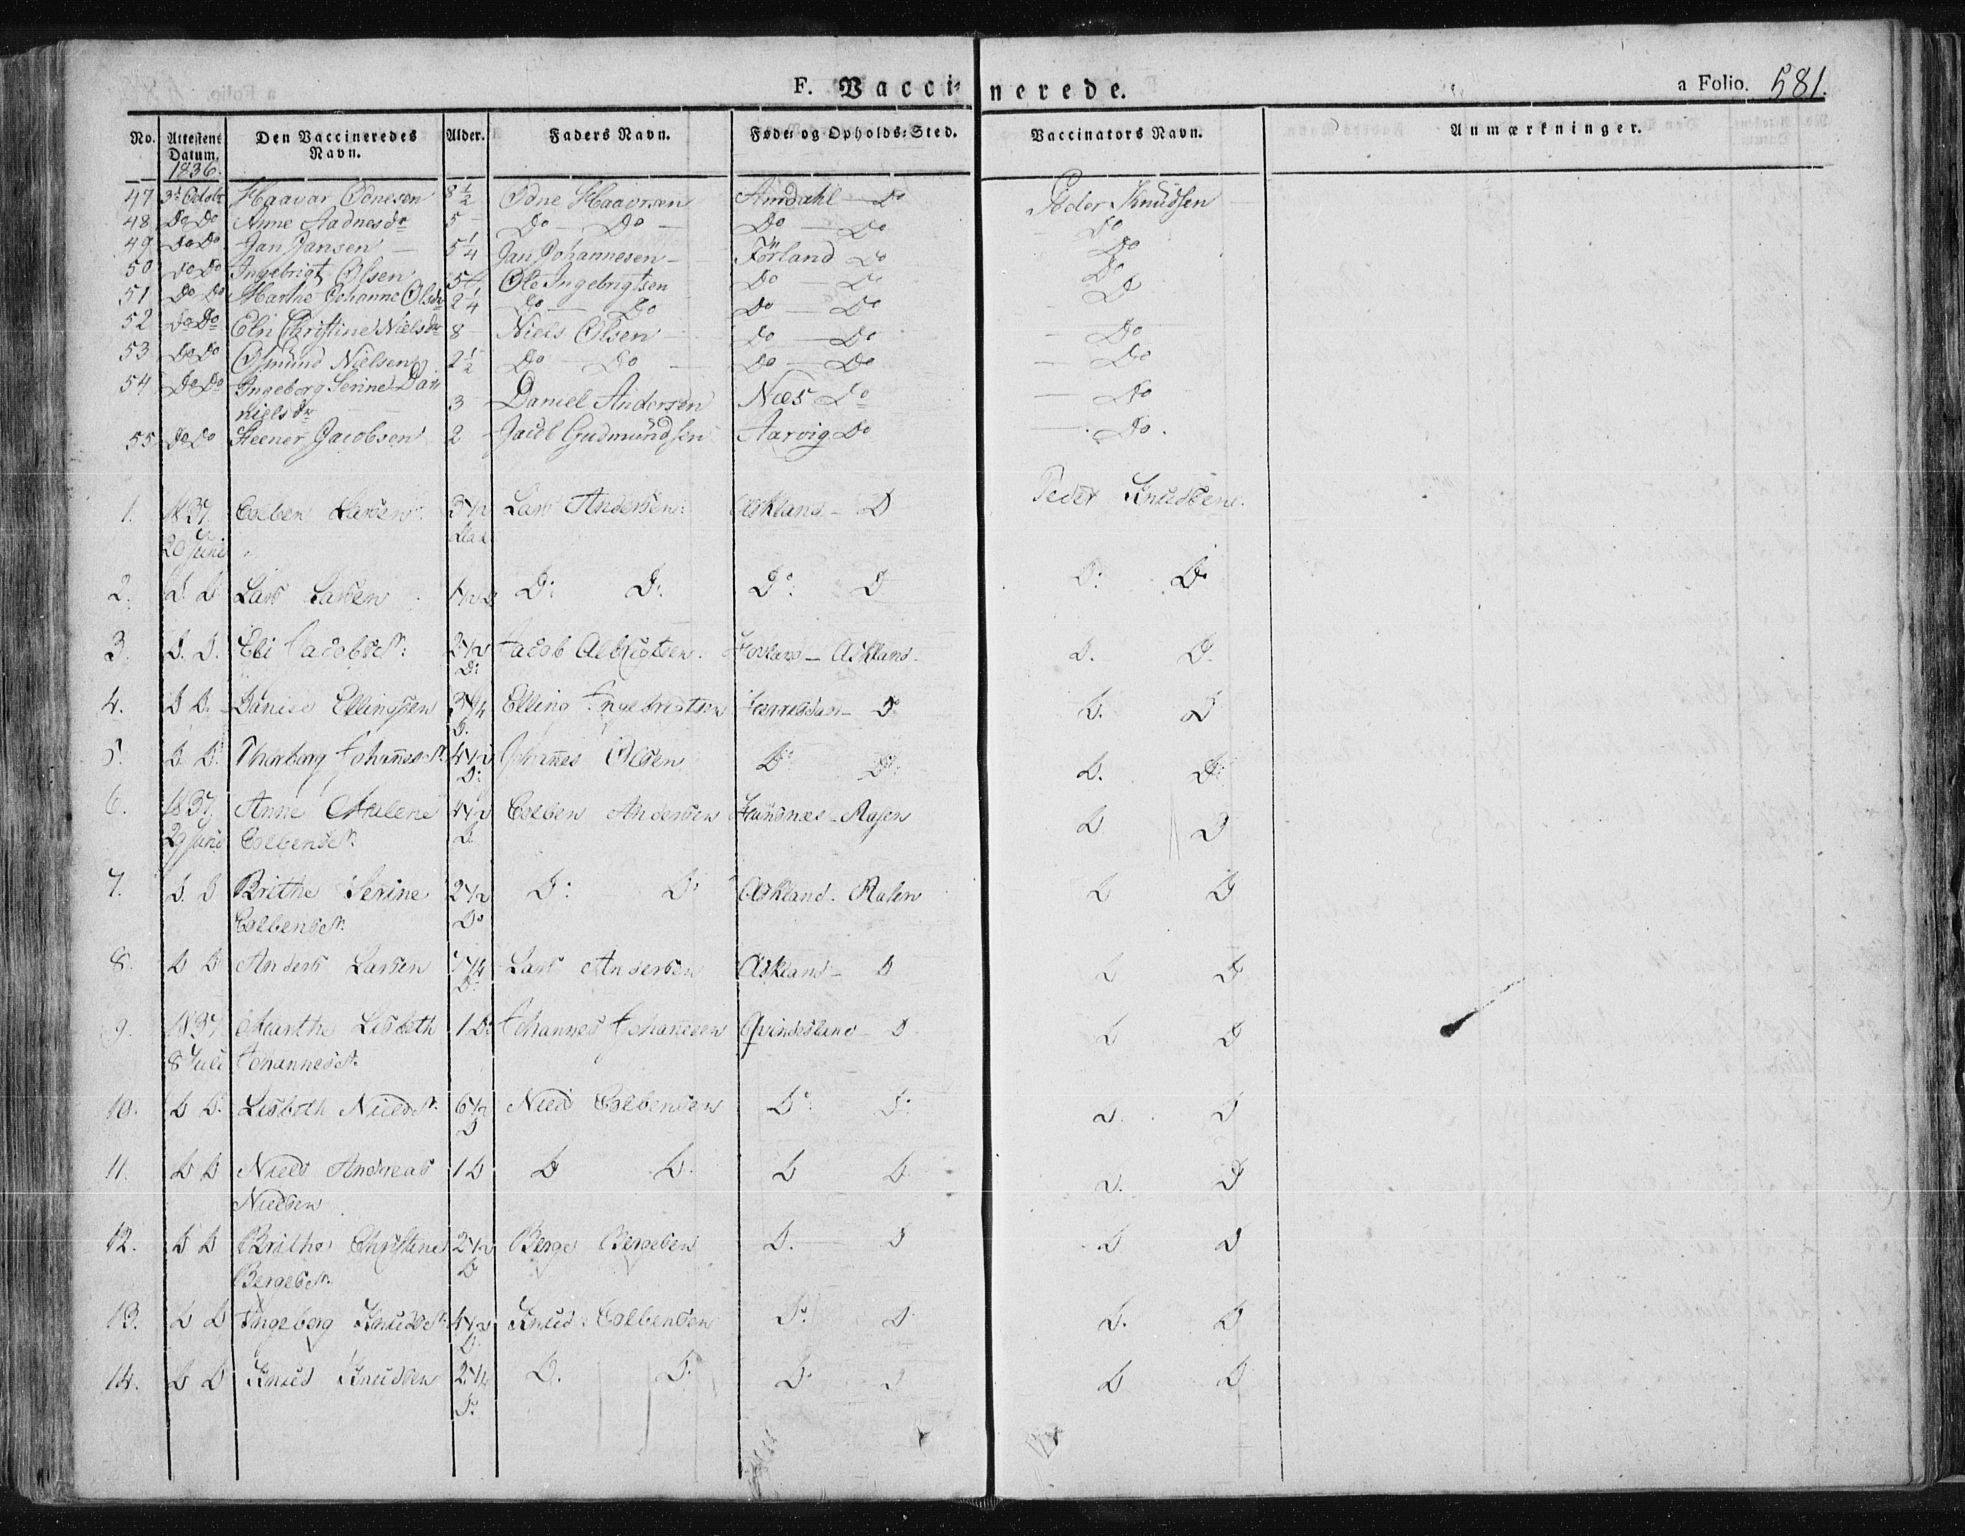 F. Vaccinerede. a Folio. 581.
No. Attestens Datum. Den Vaccineredes Navn. Alder. Faders Navn. Føde- og Opholds-Sted. Vaccinators Navn. Anmærkninger.
1836.
47 3d Octobr Haavar Ednesen 8 1/2 Edne Haavorsen Amdahl Do Peder Knudsen
48 Do Do Anne Aadnesdr 5 Do Do Do Do Do
49 Do Do Jan Jansen 5 1/4 Jan Johannesen Förland Do Do
50 Do Do Ingebrigt Olsen 5 Ole Ingebrigtsen Do Do Do
51 Do Do Marthe Johanne Olsdr 2 1/4 Do Do Do Do Do
52 Do Do Elen Christine Nielsdr 8 Niels Olsen Do Do Do
53 Do Do Osmund Nielsen 2 1/2 Do Do Do Do Do
54 Do Do Ingeborg Serine Dan
nielsdr 3 Daniel Andersen Næs Do Do
55 Do Do Steener Jacobsen 2 Jacob Gudmundsen Aarvig Do Do.
1. 1837 Colben Larsen 3 1/2 Lars Andersen Askland D Peder Knudsen.
29 Juni
2. D. D. Lars Larsen 1 1/2 D: D: D: D D: D:
3. D. D. Eli Jacobsdr: 2 1/2 Jacob Albrigtsen. Hovland Askland. D. D.
D:
4. D D. Daniel Ellingsen 2 1/4 Elling Ingebrigtsen D. D. D
D.
5. D. D. Thorborg Johannesdr. 4 1/2 Johannes Olsen D: D: D. D:
D:
6. 1837 Anne Malene 4 1/2 Colben Andersen Rasen D D
29 Juni Colbensdr. D.
7. D. D Brithe Serine 2 1/2 D: D: Askland. Rasen D D
Colbensdr. Do
8. D D Anders Larsen 7 1/4 Lars Andersen Askland D D D
D:
9. 1837 Marthe Lisbeth 1 D: Johannes Johansen Qvindesland D D D
8 Juli Johannesdr.
10. D D. Lisbeth Nielsdr. 6 1/2 Niels Colbensen D: D: D. D
D
11. D D Niels Andreas 1 D D D. D D. D. D
Nielsen
12. D D Brithe Christine 2 1/2 Berge Bergesen D. D D. D
Bergesdr. D
13. D D Ingeborg Knudsdr. 4 1/2 Knud Colbensen D: D D. D
D.
14. D D Knud Knudsen 2 1/4 D. D. D. D D D
D: